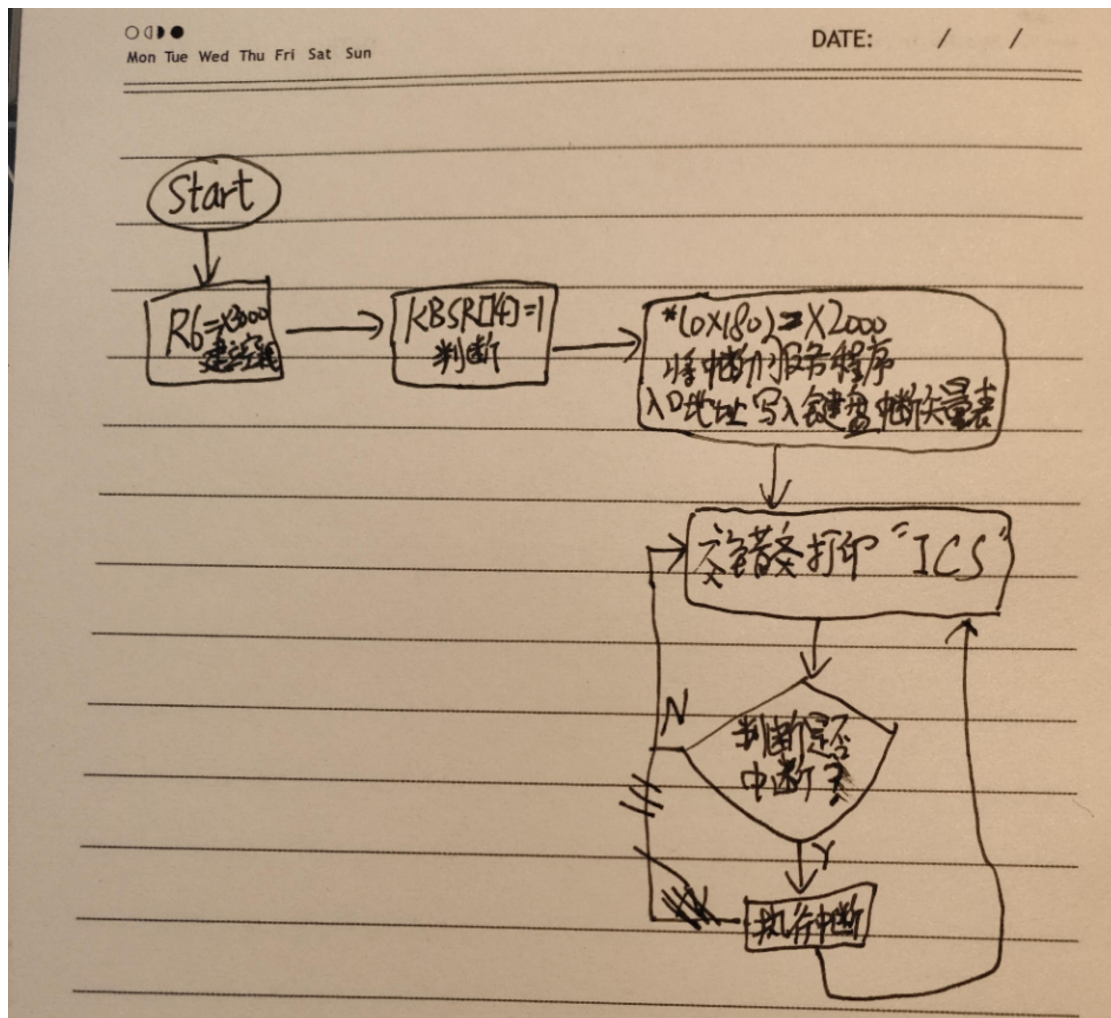 Mon Tue Wed Thu Fri Sat Sun
DATE: / /
Start
R6=x3000
KBSR[14]=1
判断
*(0x180)=X2000
将中断服务程序
入口地址写入键盘中断矢量表
交错打印“ICS”
N
判断是否
中断?
Y
执行中断